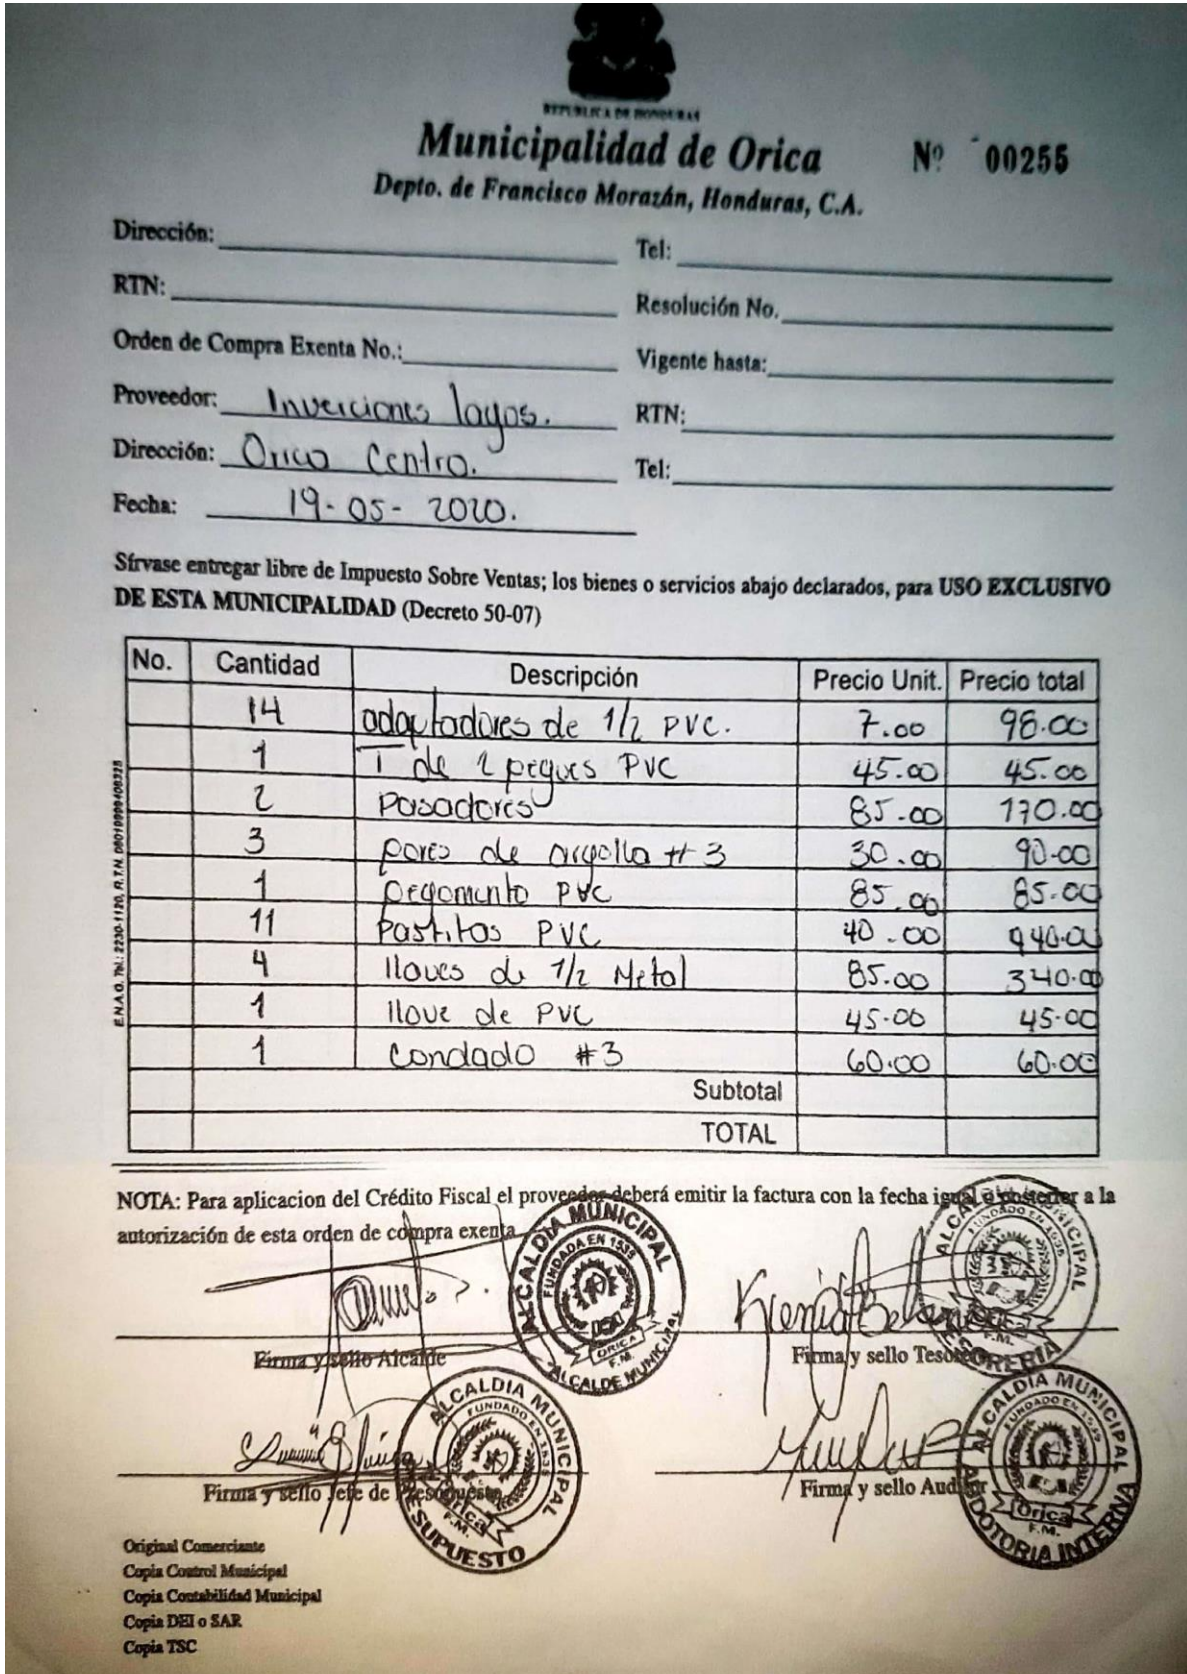 REPUBLICA DE HONDURAS
Municipalidad de Orica Nº 00255
Depto. de Francisco Morazán, Honduras, C.A.
Dirección: Tel:
RTN: Resolución No.
Orden de Compra Exenta No.: Vigente hasta:
Proveedor: Inverciones lagos. RTN:
Dirección: Orica Centro. Tel:
Fecha: 19-05-2020.
Sírvase entregar libre de Impuesto Sobre Ventas; los bienes o servicios abajo declarados, para USO EXCLUSIVO
DE ESTA MUNICIPALIDAD (Decreto 50-07)
No. Cantidad Descripción Precio Unit. Precio total
14 adaptadores de 1/2 PVC. 7.00 98.00
1 T de 2 pegues PVC 45.00 45.00
2 Pasadores 85.00 170.00
3 pares de argolla #3 30.00 90.00
1 pegamento PVC 85.00 85.00
11 PVC 40.00 440.00
4 llaves de 1/2 Metal 85.00 340.00
1 llave de PVC 45.00 45.00
1 Condado #3 60.00 60.00
Subtotal
TOTAL
E.N.A.G. Tel.: 2230-1120, R.T.N.
NOTA: Para aplicacion del Crédito Fiscal el proveedor deberá emitir la factura con la fecha igual o posterior a la
autorización de esta orden de compra exenta
ALCALDIA MUNICIPAL
FUNDADA EN 1535
ORICA
F.M.
ALCALDE MUNICIPAL
Firma y sello Alcalde
Firma y sello Tesorero
F.M.
ALCALDIA MUNICIPAL
Orica
F.M.
Firma y sello Jefe de Presupuesto
ALCALDIA MUNICIPAL
Orica
F.M.
AUDOTORIA INTERNA
Firma y sello Auditor
Original Comerciante
Copia Control Municipal
Copia Contabilidad Municipal
Copia DEI o SAR
Copia TSC